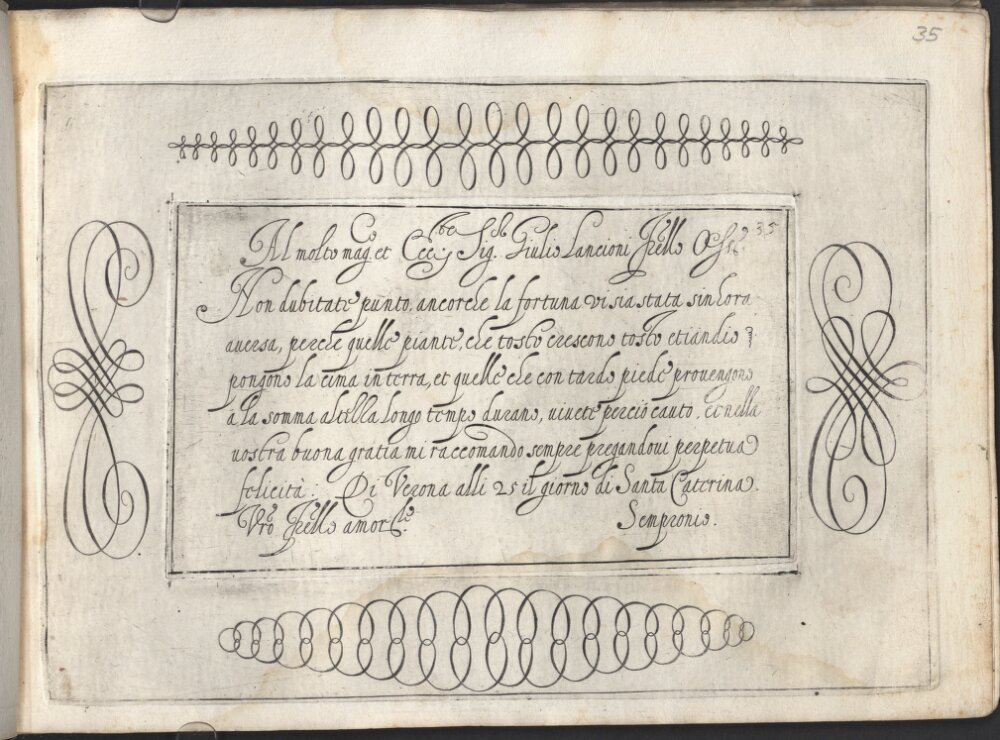 35
Al molto mag.co et Ecc.te Sig.r Giulio Lancioni frello Oss.
35
Non dubitate punto, ancorche la fortuna vi sia stata sin hora
aversa, perche quelle piante, che tosto crescono tosto etiandio
pongono la cima in terra, et quelle che con tardo piede provengono
a la somma altezza longo tempo durano, vivete perciò cauto, et nella
vostra buona gratia mi raccomando sempre pregandovi perpetua
felicità. Di Verona alli 25 il giorno di Santa Caterina.
Vro frello amor.le
Sempronio.